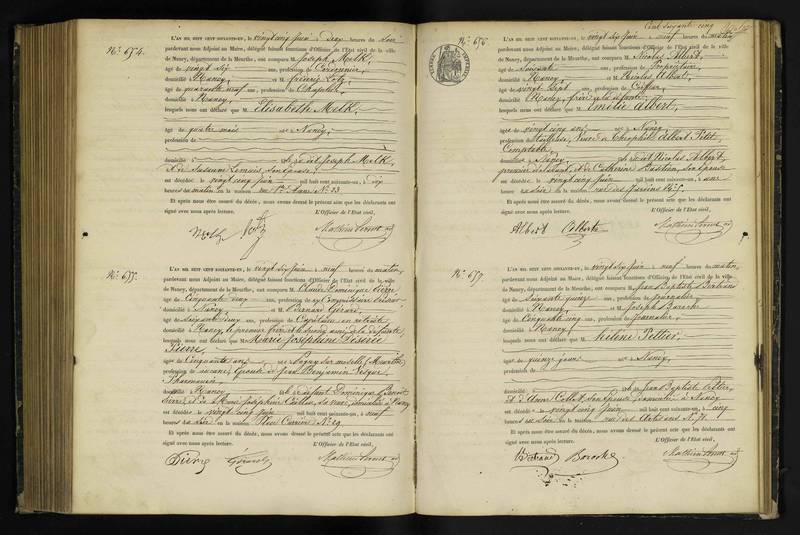 No. 654.
L'AN MIL HUIT CENT SOIXANTE-UN, le vingt cinq Juin à deux heures du soir
pardevant nous Adjoint au Maire, délégué faisant fonctions d'Officier de l'Etat civil de la ville
de Nancy, département de la Meurthe, ont comparu M. Joseph Melk,
âgé de vingt six ans, profession de Cordonnier,
domicilié à Nancy et M. Frédéric Lotz,
âgé de quarante neuf ans, profession de
domicilié à Nancy,
lesquels nous ont déclaré que M. Elisabeth Melk,
âgé de quatre mois né à Nancy,
profession de
domicilié à fille de dit Joseph Melk,
& de Susanne son épouse,
est décédé le vingt cinq Juin mil huit cent soixante-un, à dix
heures du matin en la maison rue Ste Anne No. 23
Et après nous être assuré du décès, nous avons dressé le présent acte que les déclarants ont
signé avec nous après lecture. L'Officier de l'Etat civil,
No. 655.
L'AN MIL HUIT CENT SOIXANTE-UN, le vingt six Juin à neuf heures du matin,
pardevant nous Adjoint au Maire, délégué faisant fonctions d'Officier de l'Etat civil de la ville
de Nancy, département de la Meurthe, ont comparu M. Dominique Pierre
âgé de Cinquante deux ans, profession de
domicilié à Nancy et M. Bernard Gérard,
âgé de soixante ans, profession de Capitaine en retraite
domicilié à Nancy, le premier frère et le second ami de la défunte,
lesquels nous ont déclaré que M. Marie Joséphine Désirée
Pierre,
âgée de Cinquante ans, née à Pagny sur moselle (Meurthe)
profession de épouse de Jean Benjamin
Pharmacien
domicilié à Nancy fille de défunt Dominique
Pierre, et de Joséphine sa veuve, domiciliée à Nancy
est décédée le vingt cinq Juin mil huit cent soixante-un, à neuf
heures du soir en la maison Place Carrière No. 29
Et après nous être assuré du décès, nous avons dressé le présent acte que les déclarants ont
signé avec nous après lecture. L'Officier de l'Etat civil,
Pierre Gérard
Cent soixante cinq
No. 656.
L'AN MIL HUIT CENT SOIXANTE-UN, le vingt six Juin à neuf heures du matin
pardevant nous Adjoint au Maire, délégué faisant fonctions d'Officier de l'Etat civil de la ville
de Nancy, département de la Meurthe, ont comparu M. Nicolas Albert,
âgé de soixante ans, profession de Propriétaire
domicilié à Nancy et M. Nicolas Albert,
âgé de vingt sept ans, profession de Coiffeur,
domicilié à Nancy, frère de la défunte,
lesquels nous ont déclaré que M. Amélie Albert,
âgée de vingt cinq ans née à Nancy,
profession de tailleuse, Veuve de Théophile Albert Petit,
Comptable
domicilié à Nancy, fille de dit Nicolas Albert,
premier déclarant, & de Catherine Bastien, son épouse
est décédée le vingt cinq Juin mil huit cent soixante-un, à une
heure du soir en la maison rue des Jardins No. 5.
Et après nous être assuré du décès, nous avons dressé le présent acte que les déclarants ont
signé avec nous après lecture. L'Officier de l'Etat civil,
Albert Albert
No. 657.
L'AN MIL HUIT CENT SOIXANTE-UN, le vingt six Juin à neuf heures du matin,
pardevant nous Adjoint au Maire, délégué faisant fonctions d'Officier de l'Etat civil de la ville
de Nancy, département de la Meurthe, ont comparu M. Jean Baptiste Bertrand
âgé de soixante quinze ans, profession de Journalier,
domicilié à Nancy et M. Joseph
âgé de Cinquante cinq ans, profession de Journalier,
domicilié à Nancy
lesquels nous ont déclaré que M. Hélène Peltier,
âgée de quinze jours née à Nancy,
profession de
domicilié à fille de Jean Baptiste Peltier,
& d'Anne son épouse à Nancy
est décédée le vingt cinq Juin mil huit cent soixante-un, à cinq
heures du soir en la maison rue des Artisans No. 71.
Et après nous être assuré du décès, nous avons dressé le présent acte que les déclarants ont
signé avec nous après lecture. L'Officier de l'Etat civil,
Bertrand